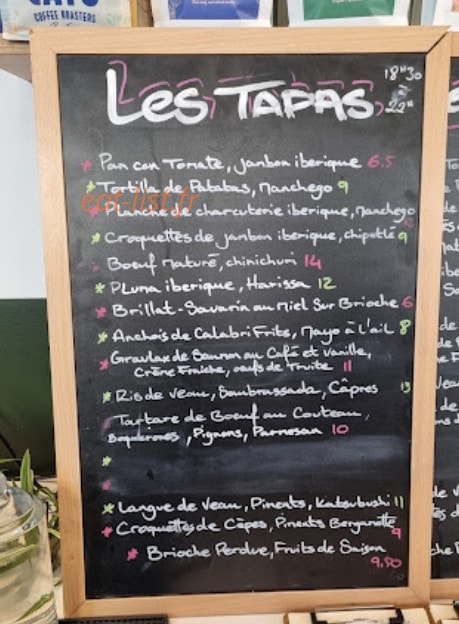 COFFEE ROASTERS
LES TAPAS
18H30
22H
Pan con Tomate, jambon iberique 6.5
Tortilla de Patatas, Manchego 9
eat-list.fr
Planche de charcuterie iberique, Manchego
Croquettes de jambon iberique, chipotlé 9
Boeuf maturé, chimichuri 14
PLuma iberique, Harissa 12
Brillat-Savarin au miel Sur Brioche 6
Anchois de Calabri Frits, Mayo à l'ail 8
Gravlax de Saumon au Café et Vanille,
Crème Fraîche, oeufs de Truite 11
Ris de Veau, Soubrassada, Câpres 13
Tartare de Boeuf au Couteau,
Boquerones, Pignons, Parmesan 10
Langue de Veau, Piments, Katsubushi 11
Croquettes de Cèpes, Piments Bergamotte
9
Brioche Perdue, Fruits de Saison
9,50